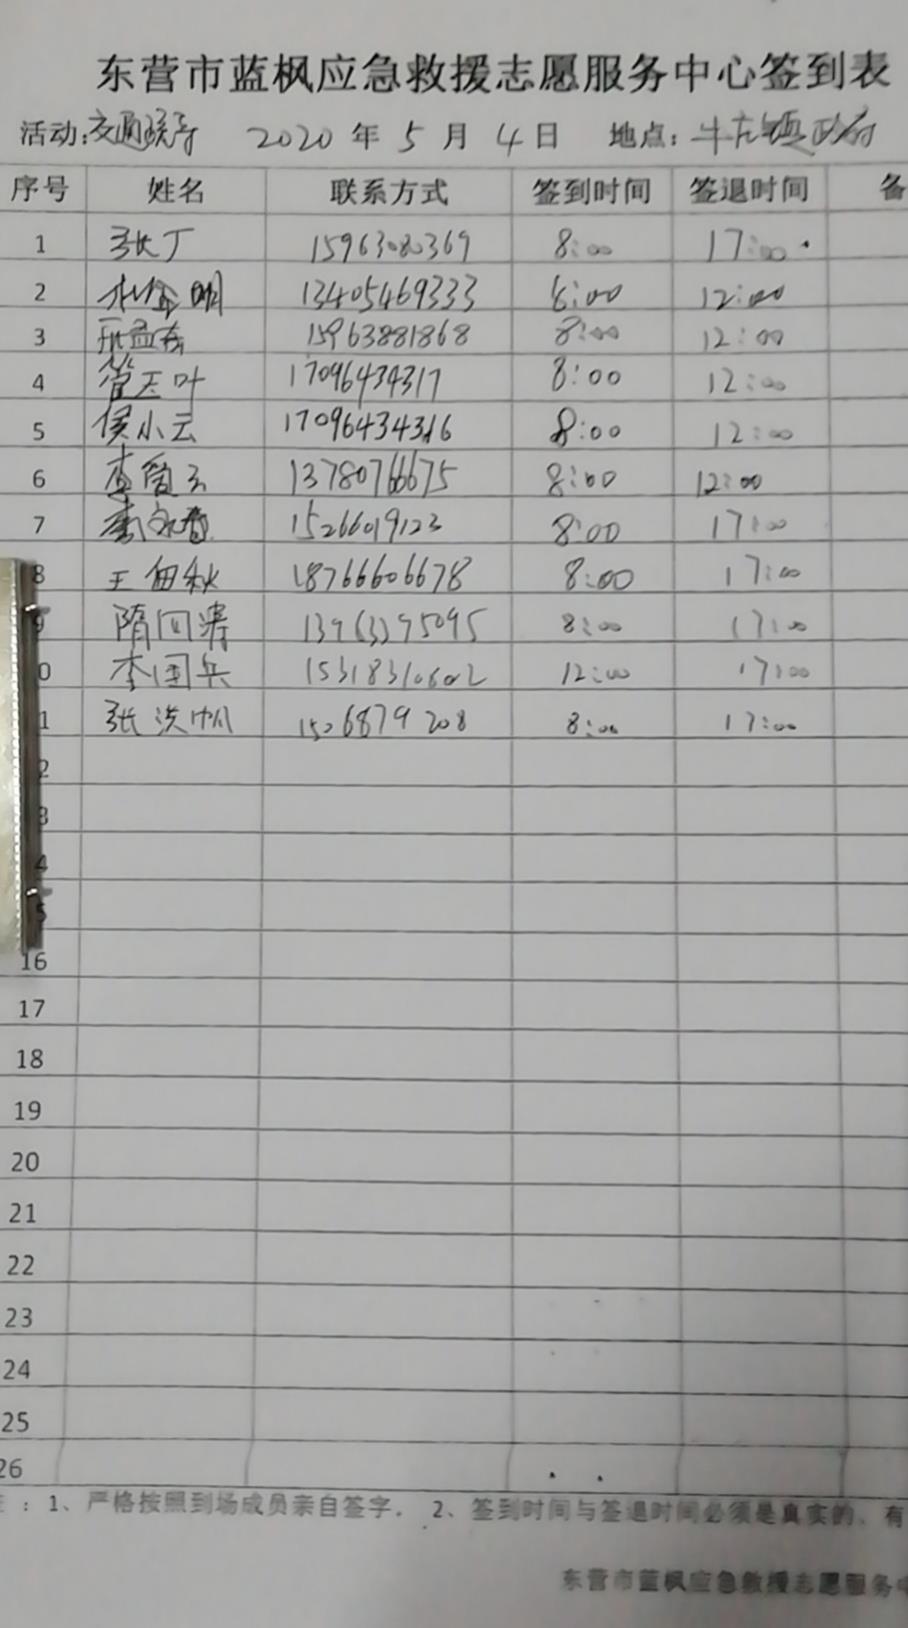 东营市蓝枫应急救援志愿服务中心签到表
活动:交通疏导 2020 年 5 月 4 日 地点: 牛庄镇政府
序号 姓名 联系方式 签到时间 签退时间 备
1 张丁 15963080369 8:00 17:00
2 13405469333 8:00 12:00
3 15963881868 8:00 12:00
4 管玉叶 17096434317 8:00 12:00
5 侯小云 17096434316 8:00 12:00
6 13780766675 8:00 12:00
7 15266019123 8:00 17:00
8 王 秋 18766606678 8:00 17:00
9 隋回涛 8:00 17:00
0 李国兵 15318310602 12:00 17:00
1 张洪帆 1506879 208 8:00 17:00
2
3
4
5
16
17
18
19
20
21
22
23
24
25
26
: 1、严格按照到场成员亲自签字. 2、签到时间与签退时间必须是真实的、有
东营市蓝枫应急救援志愿服务中